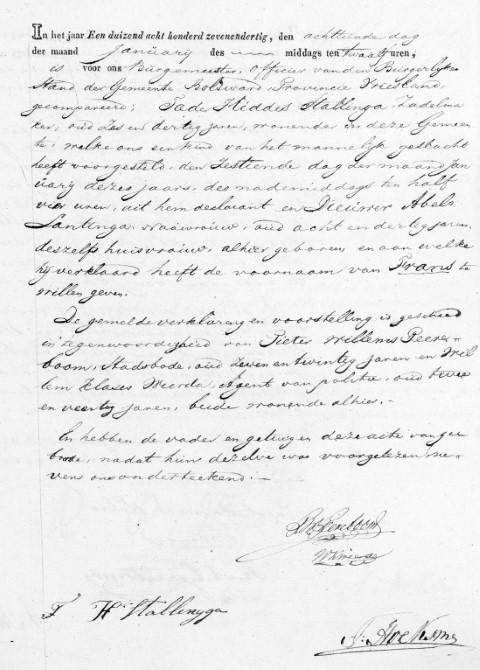 In het jaar Een duizend acht honderd zevenendertig, den achttiende dag
der maand Januarij des middags ten twaalf uren,
is voor ons Burgemeester, Officier van den Burgerlijke
Stand der Gemeente Bolsward, Provincie Vriesland,
gecompareerd; Hiddes Stallinga, Zadelma
ker, oud Zes en dertig jaren, wonende in deze Gemeen
te, welke ons een kind van het mannelijk geslacht
heeft voorgesteld, den Zestiende dag der maand Jan
uarij dezes jaars, des nademiddags ten half
vier uren, uit hem declarant en Dieuwer Abels
Santinga vroedvrouw, oud acht en dertig jaren,
deszelfs huisvrouw, alhier geboren, en aan welke
hij verklaard heeft de voornaam van Frans te
willen geven.
De gemelde verklaring en voorstelling is geschied
in tegenwoordigheid van Pieter Willems Peere-
boom, Stadsbode, oud Zeven en twintig jaren en Wil
lem Klases Weerda, Agent van politie, oud twee
en veertig jaren, beide wonende alhier.-
En hebben de vader en getuigen deze acte van ge
boorte, nadat hun dezelve was voorgelezen ne-
vens ons onderteekend.-
H Stallinga